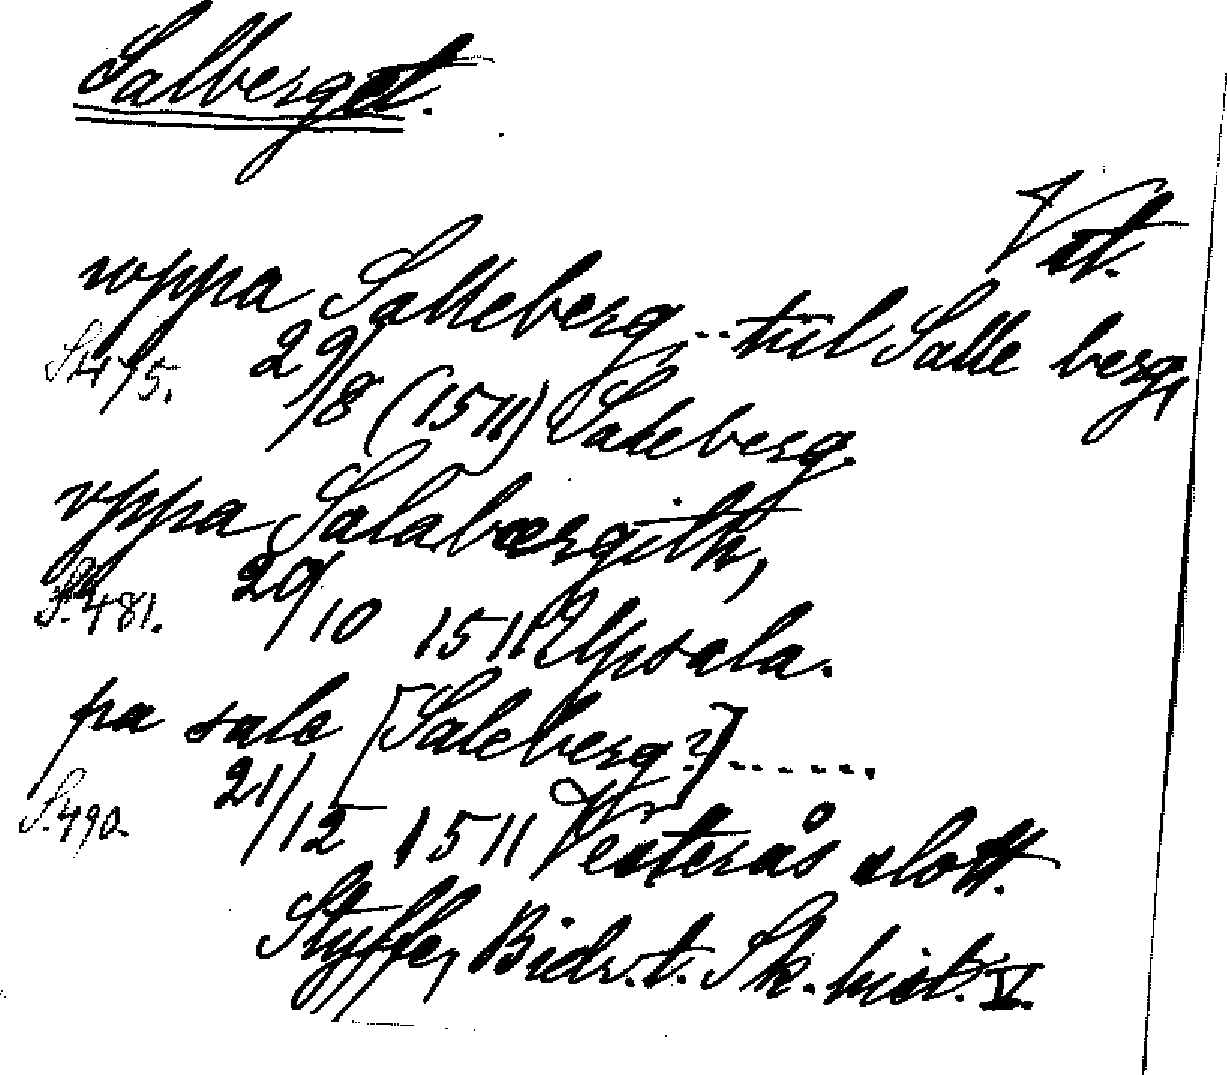 Salberget.
Vst.
uppa Salleberg... till Salle berg,
S. 475. 29/8 (1511) Saleberg
vppa Salabærgith,
S. 481. 20/10 1511 Upsala.
pa sale [Saleberg?]......
S. 490. 21/12 1511 Vesterås slott.
Styffe, Bidr. t. Sk. hist. V.